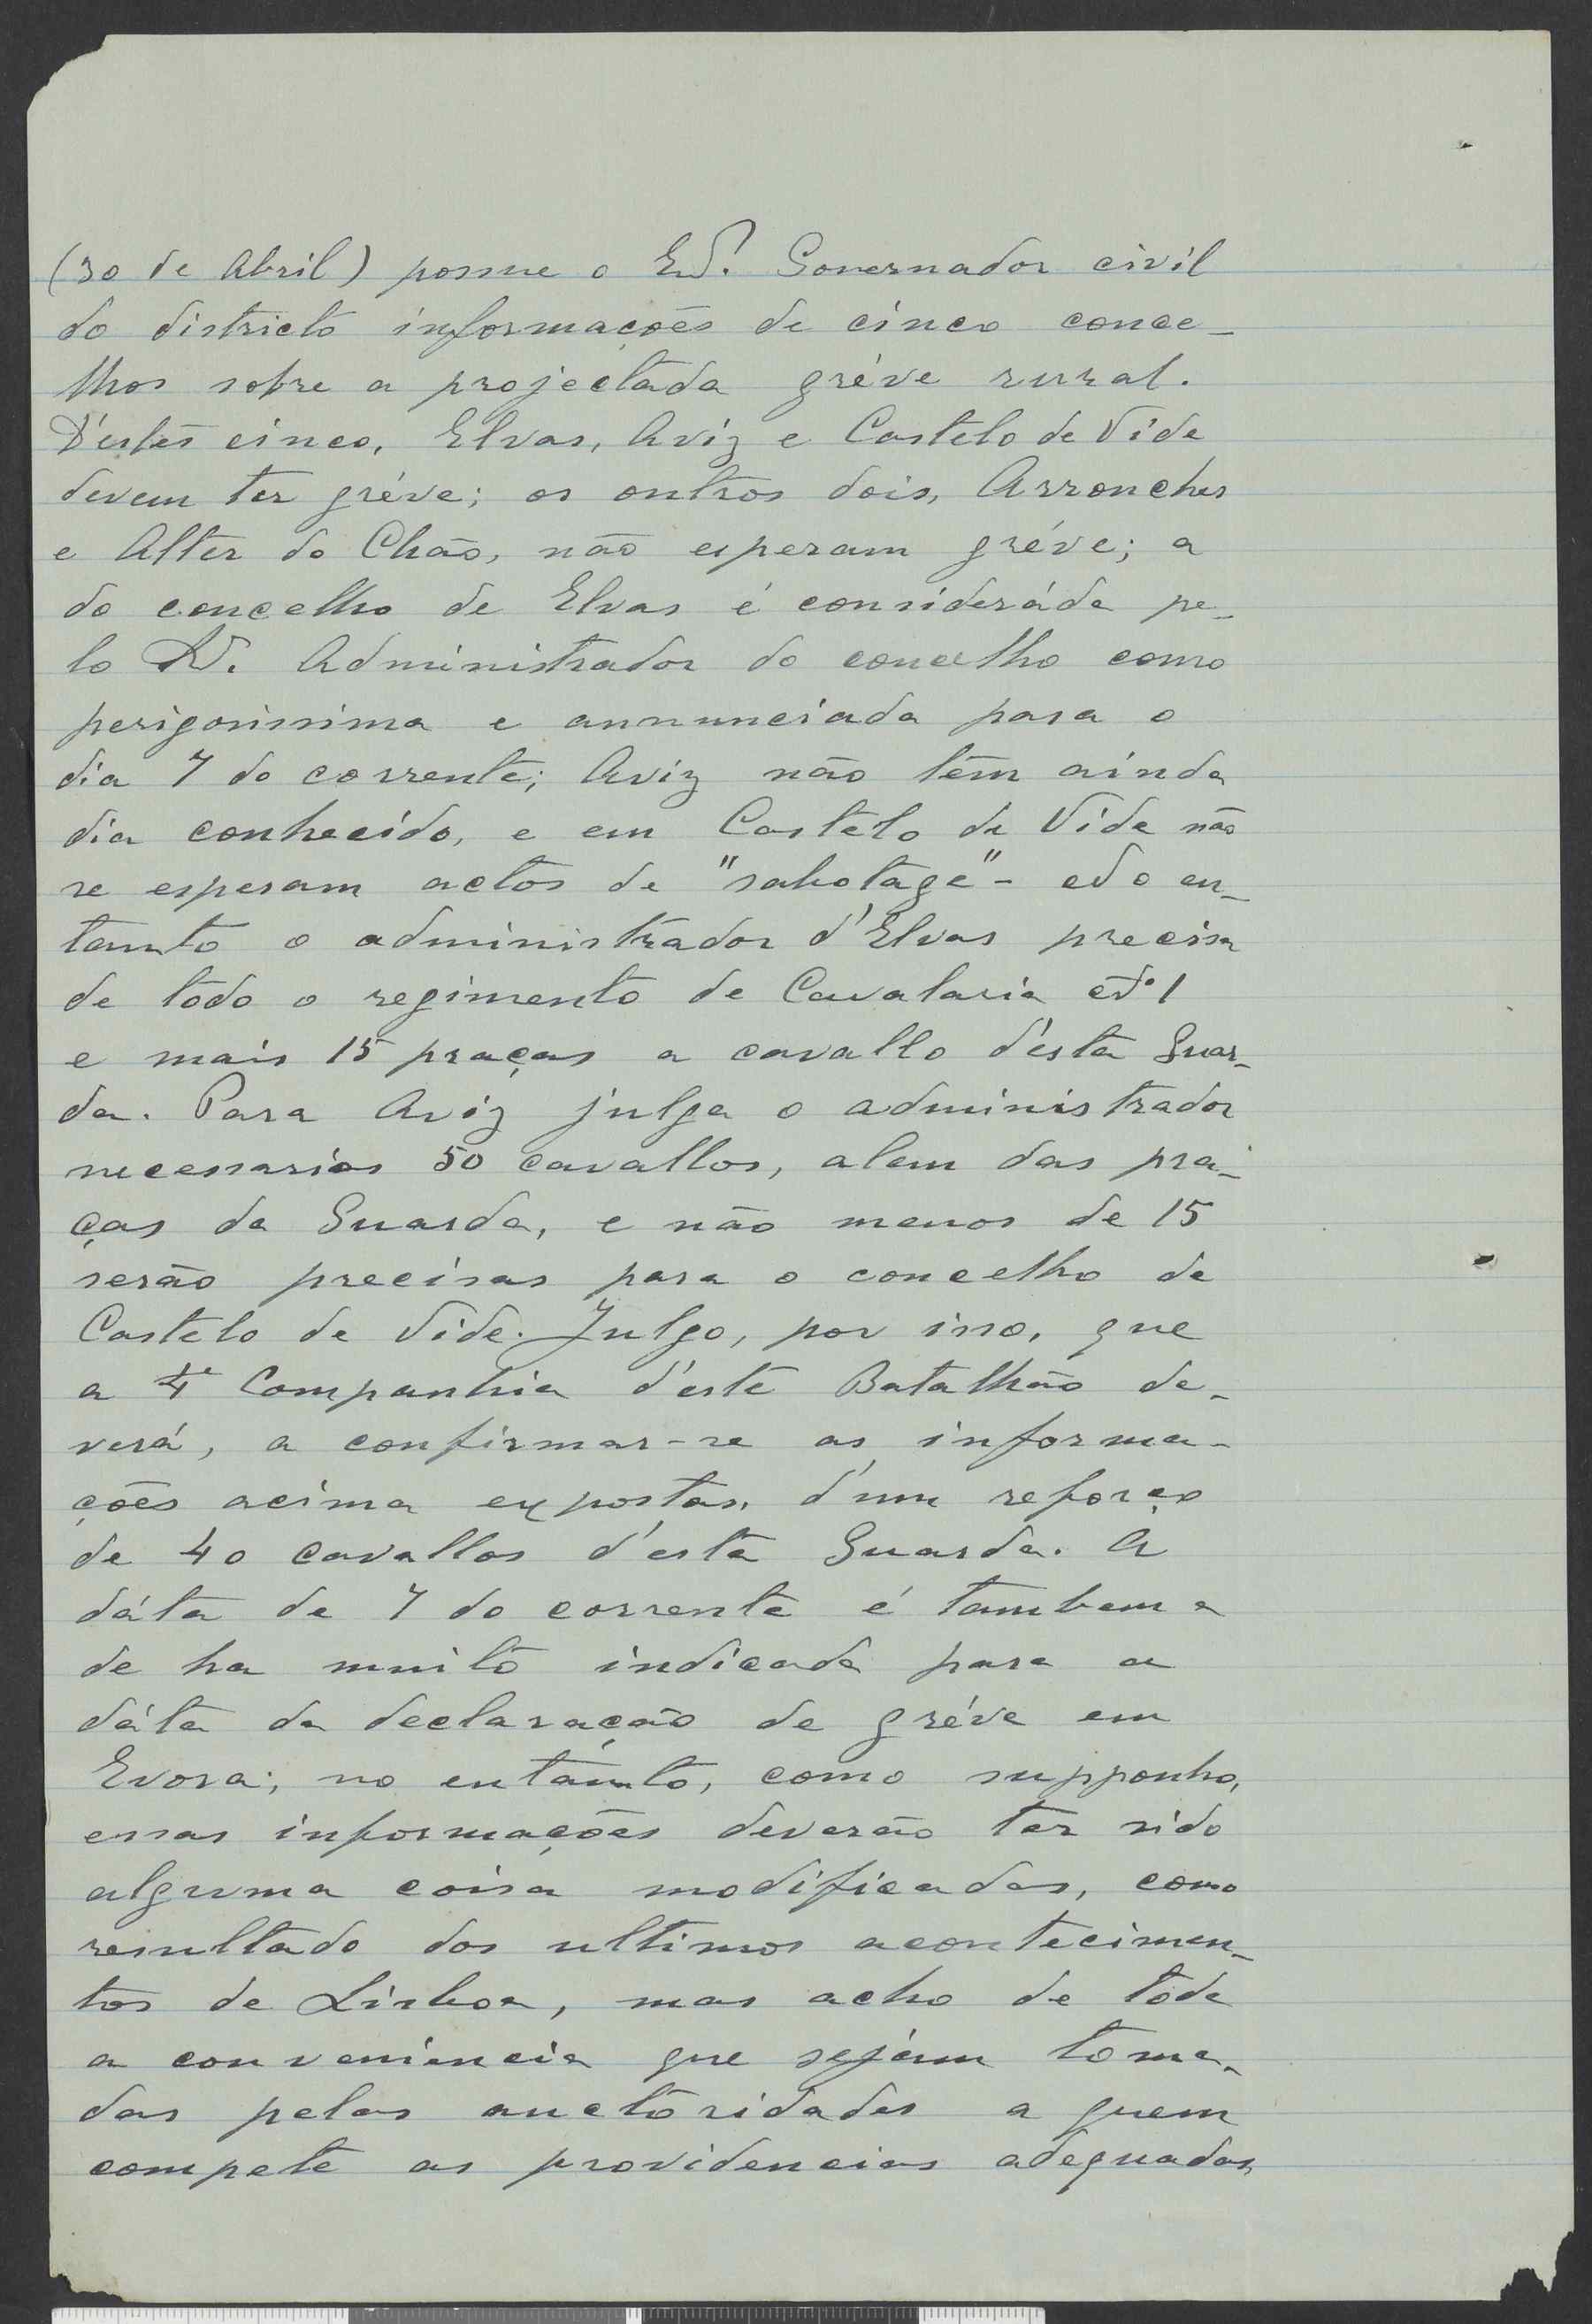 (30 de Abril) possue o Ex.º Governador civil
do districto informações de cinco conce-
lhos sobre a projectada gréve rural.
D'estes cinco, Elvas, Aviz e Castelo de Vide
devem ter gréve; os outros dois, Arronches
e Alter do Chão, não esperam gréve; a
do concelho de Elvas é consideráda pe-
lo Administrador do concelho como
perigosissima e annunciada para o
dia 7 do corrente; Aviz não têm ainda
dia conhecido, e em Castelo de Vide não
se esperam actos de "sabotage" - No en-
tanto o administrador d'Elvas precisa
de todo o regimento de Cavalaria Nº 1
e mais 15 praças a cavallo d'esta Guar-
da. Para Aviz julga o administrador
necessarios 50 cavallos, alem das pra-
ças da Guarda, e não menos de 15
serão precisas para o concelho de
Castelo de Vide. Julgo, por isso, que
a 4ª Companhia d'este Batalhão de-
verá, a confirmar-se as informa-
ções acima expostas, d'um reforço
de 40 cavallos d'esta Guarda. A
dáta de 7 do corrente é tambem a
de ha muito indicada para a
dáta da declaração de gréve em
Evora; no entanto, como supponho,
essas informações deverão ter sido
alguma coisa modificadas, como
resultado dos ultimos acontecimen-
tos de Lisboa, mas acho de toda
a conveniencia que sejam toma-
das pelas auctoridades a quem
compete as providencias adequadas,